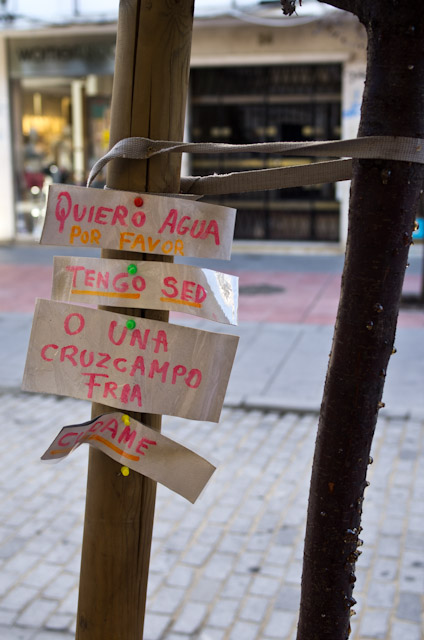 QUIERO AGUA
POR FAVOR
TENGO SED
O UNA
CRUZCAMPO
FRIA
CUIDAME